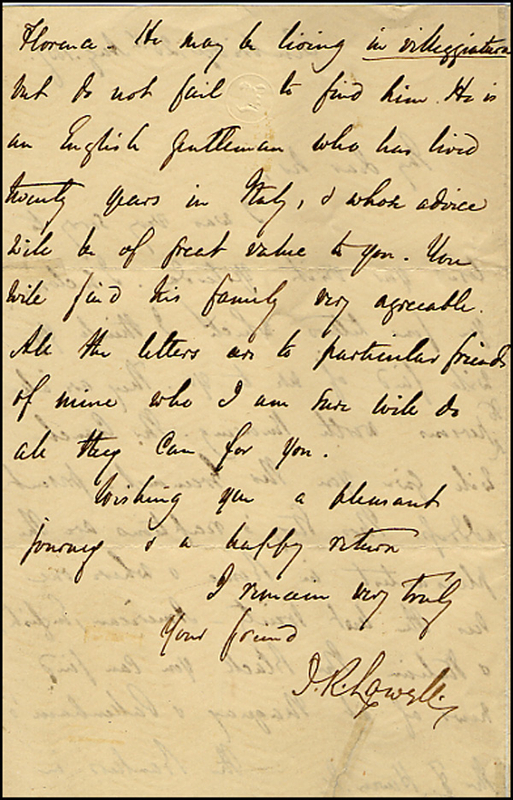 Florence – He may be living in villeggiatura
but do not fail to find him. He is
an English gentleman who has lived
twenty years in Italy, & whose advice
will be of great value to you. You
will find his family very agreeable.
All the letters are to particular friends
of mine who I am sure will do
all they can for you.
Wishing you a pleasant
journey & a happy return
I remain very truly
Your friend
J. R. Lowell.